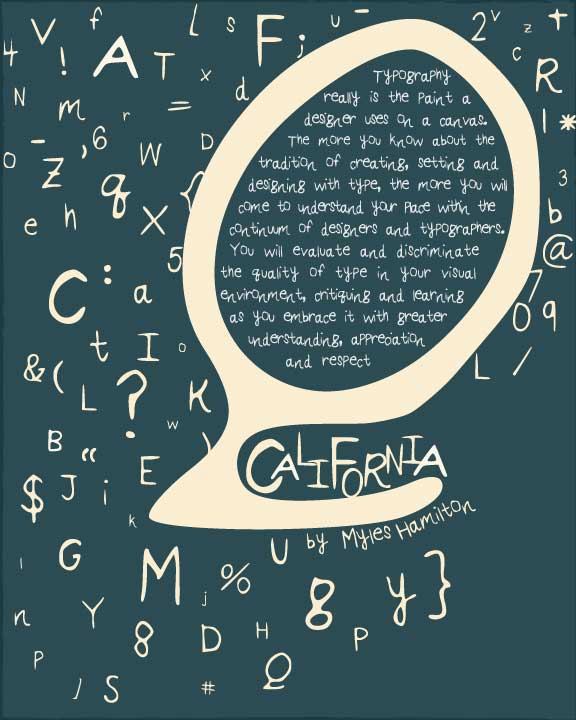 Typography
really is the paint a
designer uses on a canvas.
The more you know about the
tradition of creating, setting and
designing with type, the more you will
come to understand your pace within the
continuum of designers and typographers.
You will evaluate and discriminate
the quality of type in your visual
environment, critiquing and learning
as you embrace it with greater
understanding, appreciation
and respect
CALIFORNIA
by Myles Hamilton
V f l s F ; u - 2 v z t
4 ! A T x d c R
N m r = I *
- , 6 W D
o z q { 3
e h X b
5 @
C : a 7
t I o 0 9
& ( L ? K L /
w
B “ )
$ J i E
k
G M U
j % g y }
n Y 8 D H P
P Q
J S #